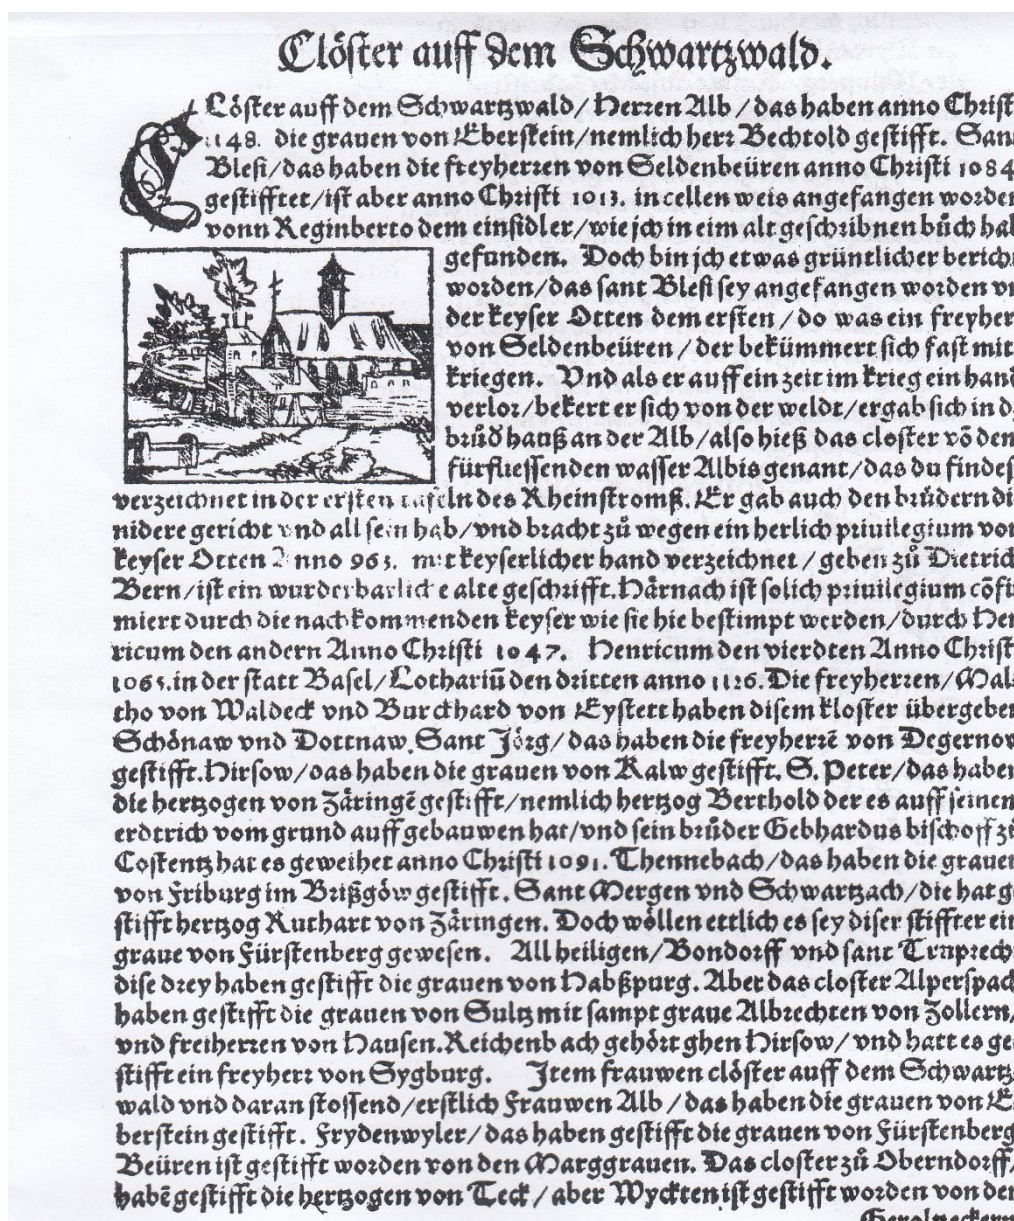 Clöster auff dem Schwartzwald.
CLöster auff dem Schwartzwald/ Herren Alb/ das haben anno Christ
1148. die grauen von Eberstein/ nemlich herr Bechtold gestifft. San
Blesi/ das haben die freyherren von Seldenbeüren anno Christi 1084
gestifftet/ ist aber anno Christi 1013. in cellen weis angefangen worden
vonn Reginberto dem einsidler/ wie jch in eim alt geschribnen bůch hab
gefunden. Doch bin jch etwas grüntlicher berich
worden/ das sant Blesi sey angefangen worden vn
der keyser Otten dem ersten/ do was ein freyher
von Seldenbeüren/ der bekümmert sich fast mit
kriegen. Vnd als er auff ein zeit im krieg ein hand
verlor/ bekert er sich von der weldt/ ergab sich in d
brůd hauß an der Alb/ also hieß das closter võ dem
fürfliessenden wasser Albis genant/ das du findest
verzeichnet in der ersten tafeln des Rheinstromß. Er gab auch den brüdern di
nidere gericht vnd all sein hab/ vnd bracht zů wegen ein herlich priuilegium von
keyser Otten Anno 963. mit keyserlicher hand verzeichnet/ geben zů Dietrich
Bern/ ist ein wunderbarliche alte geschrifft. Härnach ist solich priuilegium cõfir
miert durch die nachkommenden keyser wie sie hie bestimpt werden/ durch Hen
ricum den andern Anno Christi 1047. Henricum den vierdten Anno Christ
1065. in der statt Basel/ Lothariũ den dritten anno 1126. Die freyherren/ Wal
tho von Waldeck vnd Burckhard von Eystett haben disem kloster übergeben
Schönaw vnd Dottnaw. Sant Jörg/ das haben die freyherrẽ von Degernow
gestifft. Hirsow/ das haben die grauen von Kalw gestifft. S. Peter/ das haben
die hertzogen von Zäringẽ gestifft/ nemlich hertzog Berthold der es auff seinem
erdtrich vom grund auff gebauwen hat/ vnd sein brůder Gebhardus bischoff zů
Costentz hat es geweihet anno Christi 1091. Thennebach/ das haben die grauen
von Friburg im Brißgöw gestifft. Sant Mergen vnd Schwartzach/ die hat ge
stifft hertzog Ruthart von Zäringen. Doch wöllen ettlich es sey diser stiffter ein
graue von Fürstenberg gewesen. All heiligen/ Bondorff vnd sant Truprech
dise drey haben gestifft die grauen von Habßpurg. Aber das closter Alperspach
haben gestifft die grauen von Sultz mit sampt graue Albrechten von Zollern/
vnd freiherren von Hausen. Reichenbach gehört ghen Hirsow/ vnd hatt es ge
stifft ein freyherr von Sygburg. Item frauwen clöster auff dem Schwartz
wald vnd daran stossend/ erstlich Frauwen Alb/ das haben die grauen von E
berstein gestifft. Frydenwyler/ das haben gestifft die grauen von Fürstenberg
Beüren ist gestifft worden von den Marggrauen. Das closter zů Oberndorff/
habẽ gestifft die hertzogen von Teck/ aber Wyckten ist gestifft worden von den
Geroltzeckern